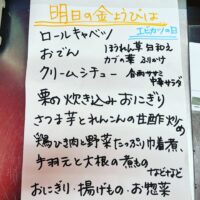 明日の金ようびは
エビカツの日
ロールキャベツ
おでん
ほうれん草 白和え
カブの葉 ふりかけ
クリームシチュー
春雨
中華サラダ
栗の炊き込みおにぎり
さつま芋とれんこんの甘酢炒め
鶏ひき肉と野菜たっぷり巾着煮、
手羽元と大根の煮もの
などなど
おにぎり・揚げもの・お惣菜